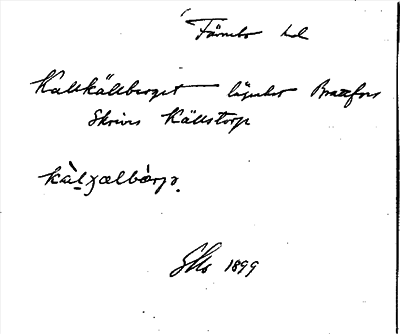 Färnebo hd
Kallkällberget lägenhet Brattfors
Skrives Källstorp
kàlχælbærjə.
1899